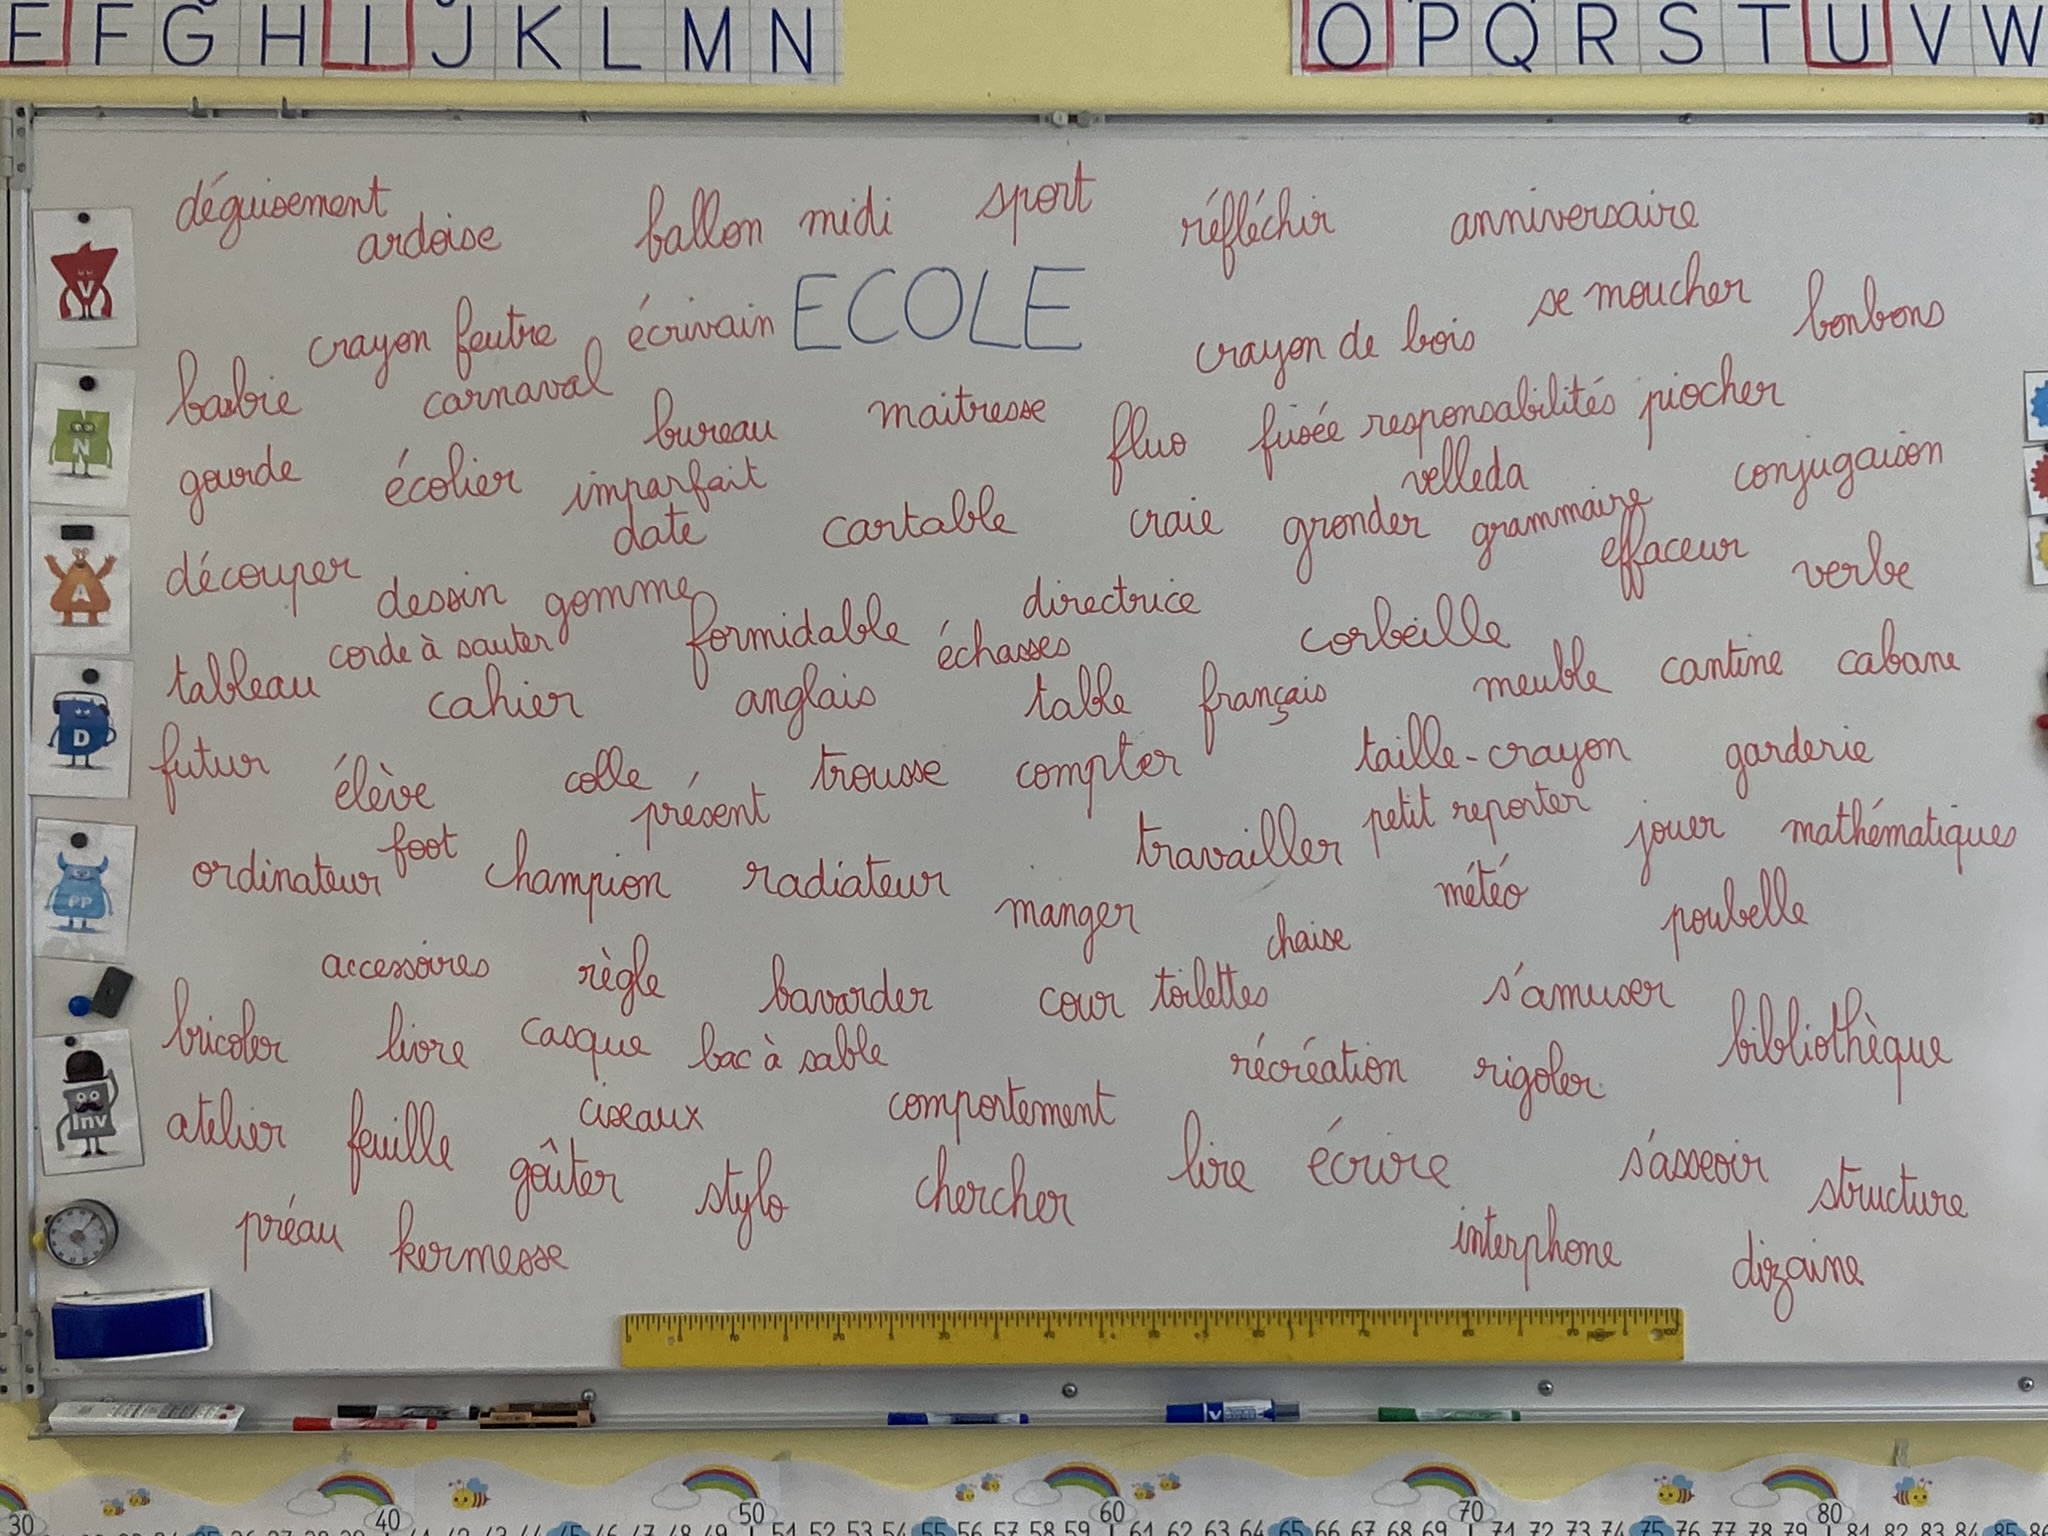 E F G H I J K L M N O P Q R S T U V W
déguisement ardoise ballon midi sport réfléchir anniversaire
crayon feutre écrivain ECOLE crayon de bois se moucher bonbons
barbie carnaval bureau maitresse fluo fusée responsabilités piocher
gourde écolier imparfait velleda conjugaison
date cartable craie gronder grammaire effaceur verbe
découper dessin gomme formidable échasses directrice corbeille
tableau corde à sauter cahier anglais table français meuble cantine cabane
futur élève colle présent trousse compter taille-crayon garderie
ordinateur foot champion radiateur manger travailler petit reporter jouer mathématiques
accessoires règle bavarder cour toilettes chaise météo poubelle
bricoler livre casque bac à sable récréation rigoler s'amuser bibliothèque
atelier feuille ciseaux comportement
goûter stylo chercher lire écrire s'asseoir structure
préau kermesse interphone dizaine
V
N
A
D
PP
Inv
30 40 50 60 70 80
51 52 53 54 55 56 57 58 59 61 62 63 64 65 66 67 68 69 71 72 73 74 75 76 77 78 79 81 82 83 84 85